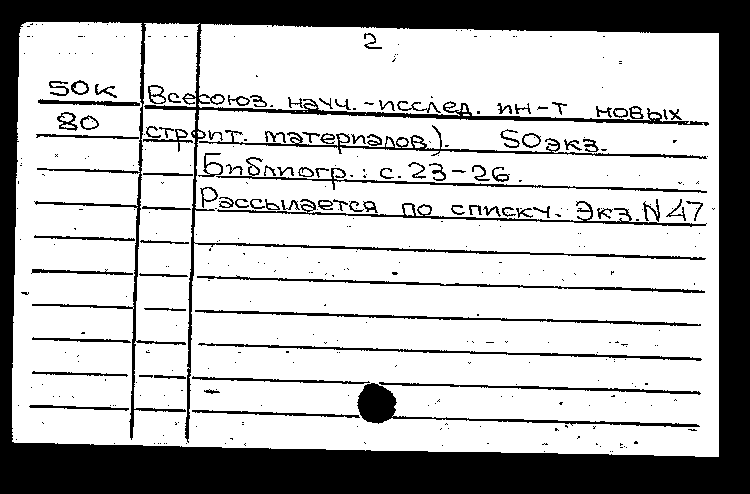 2
50к Всесоюз. науч.-исслед. ин-т новых
80 строит. материалов). 50экз.
Библиогр.: с. 23-26.
Рассылается по списку. Экз. N 47